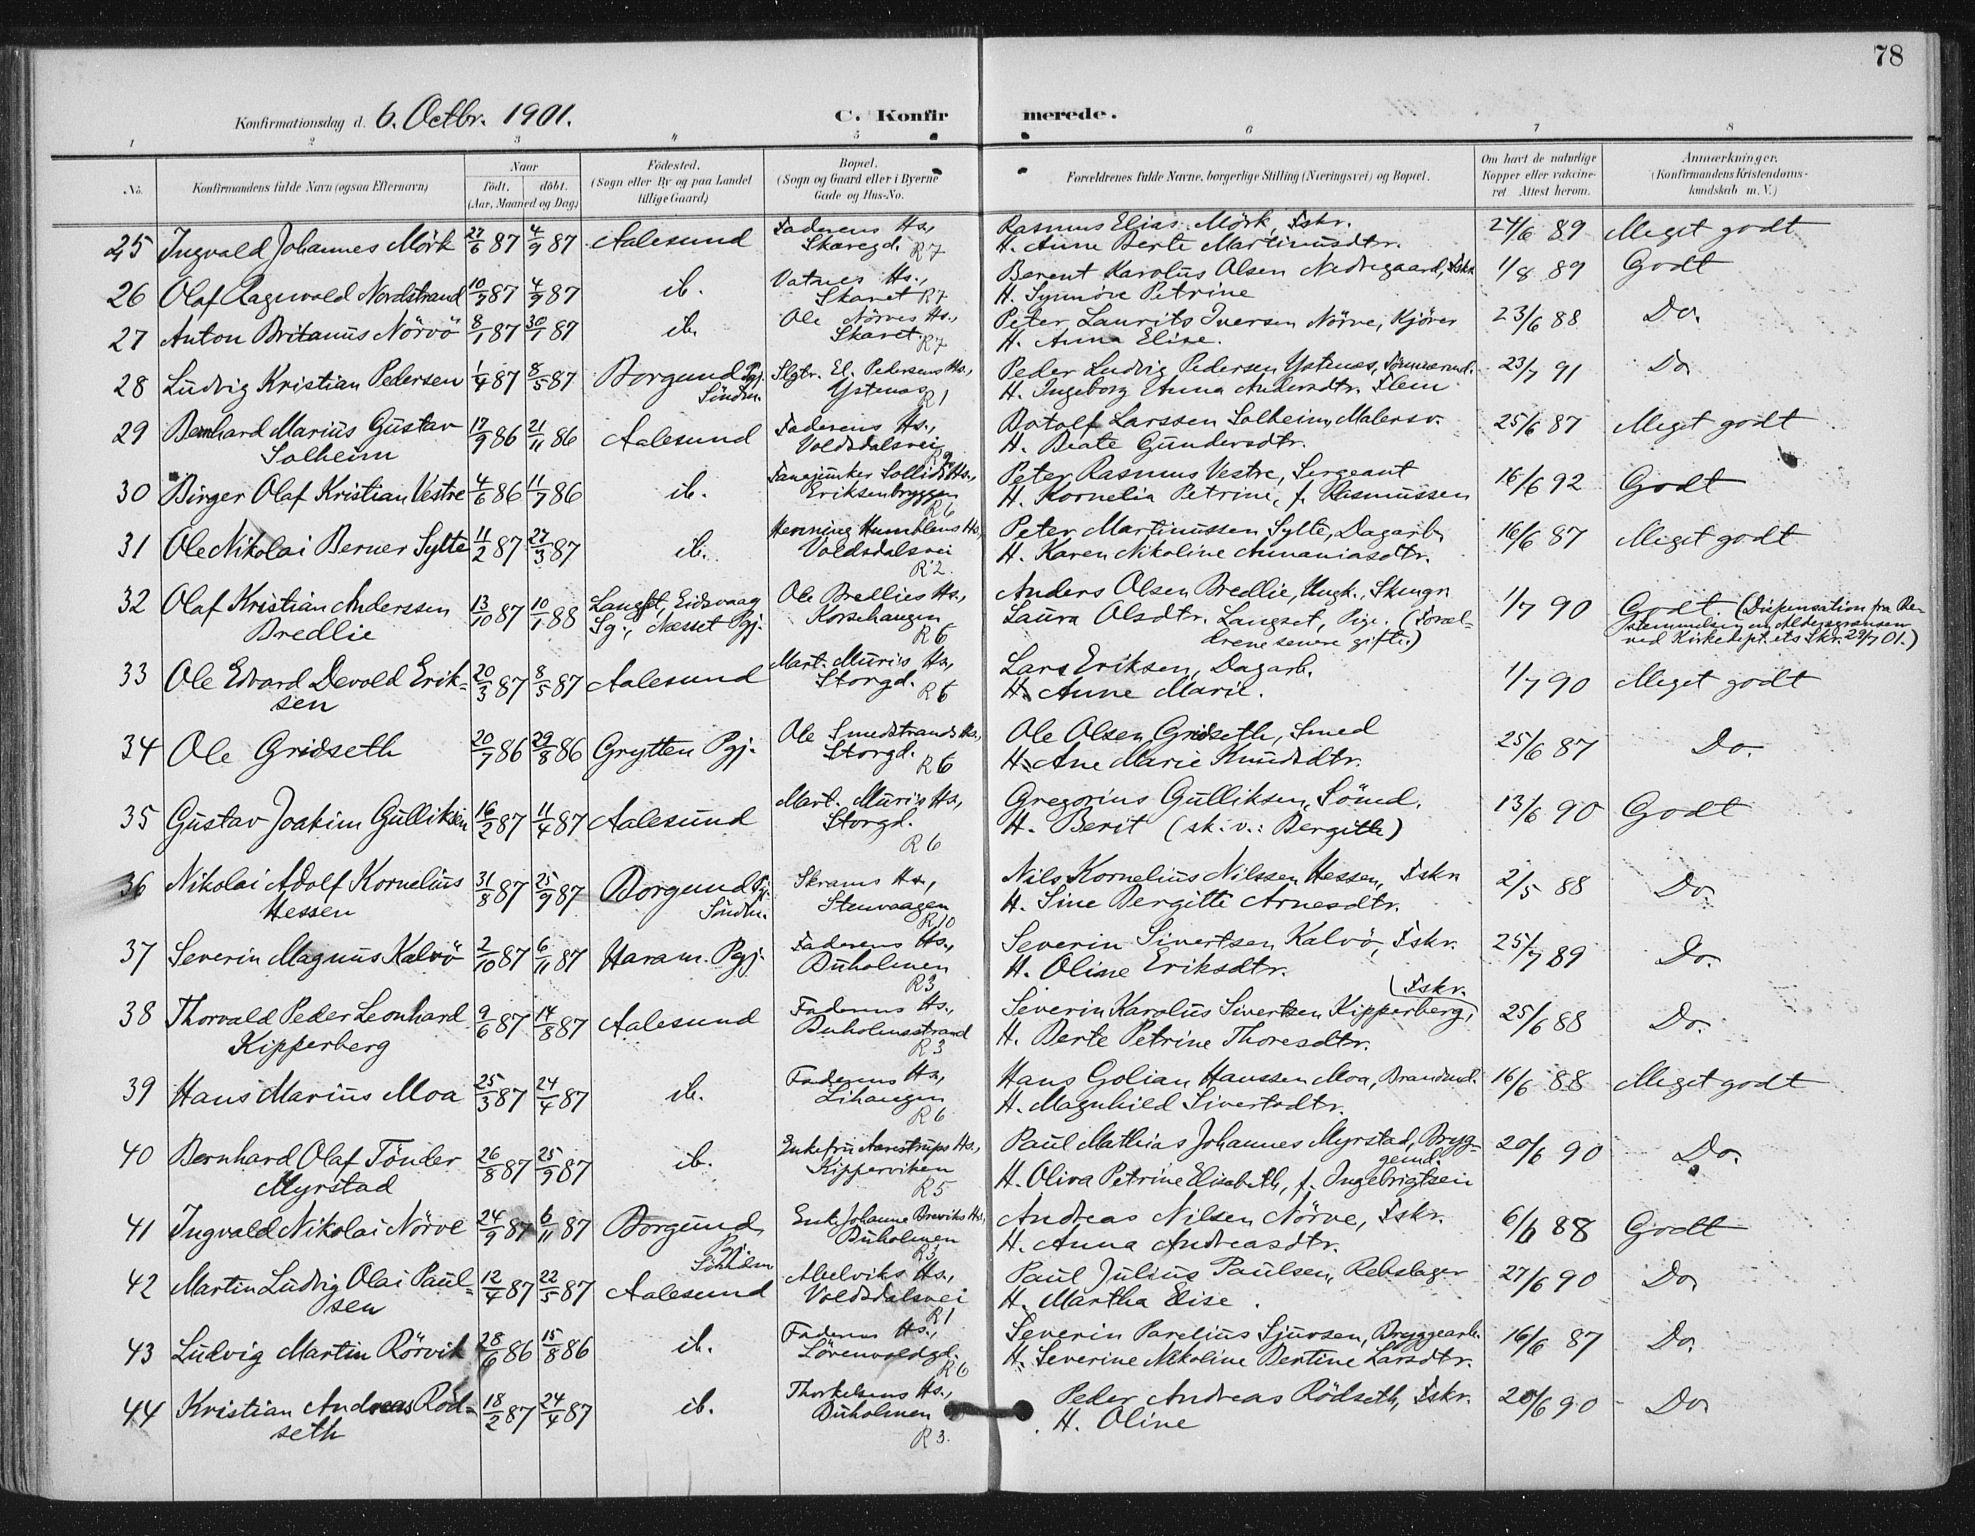 78
Konfirmationsdag d. 6. Octbr. 1901.
C. Konfirmerede.
1 2 3 4 5 6 7 8
No. Konfirmandens fulde Navn (ogsaa Efternavn) Naar födt. döbt. (Aar, Maaned og Dag) Födested. (Sogn eller By og paa Landet tillige Gaard) Bopæl. (Sogn og Gaard eller i Byerne Gade og Hus-No. Forældrenes fulde Navne, borgerlige Stilling (Næringsvei) og Bopæl. Om havt de naturlige Kopper eller vakcineret. Attest herom. Anmærkninger. (Konfirmandens Kristendomskundskab m. V.)
25 Ingvald Johannes Mörk 27/6 87 4/9 87 Aalesund Faderens Hs., Skaregd. R7 Rasmus Elias Mörk, Fskr. H. Anne Berte Martinusdtr. 24/6 89 Meget godt
26 Olaf Ragnvald Nordstrand 10/7 87 4/9 87 ib. Vatnes Hs., Skaret R7 Berent Karolus Olsen Nedregaard, Fskr. H. Synnöve Petrine 1/8 89 Godt
27 Anton Britanus Nörvö 8/1 87 30/1 87 ib. Ole Nörves Hs., Skaret. R7 Peter Laurits Iversen Nörve, Kjörer H. Anna Elise. 23/6 88 Do.
28 Ludvig Kristian Pedersen 1/4 87 8/5 87 Borgund Pgj. Söndm. Slgtr. El. Pedersens Hs., Ystenæs R1 Peder Ludvig Pedersen Ystenæs, Tömmermd. H. Ingeborg Anna Andersdtr. Flem 23/7 91 Do.
29 Bernhard Marius Gustav Solheim 17/9 86 21/11 86 Aalesund Faderens Hs., Voldsdalsvei R2 Botolf Larssen Solheim, Malersv. H. Beate Gundersdtr. 25/6 87 Meget godt
30 Birger Olaf Kristian Vestre 4/6 86 11/7 86 ib. Fanejunker Sollids Hs., Eriksenbryggen R6 Peter Rasmus Vestre, Sergeant H. Kornelia Petrine, f. Rasmussen 16/6 92 Godt
31 Ole Nikolai Berner Sylte 11/2 87 27/3 87 ib. Henning Humblens Hs., Voldsdalsvei R2. Peter Martinussen Sylte, Dagarb. H. Karen Nikoline Annaniasdtr. 16/6 87 Meget godt
32 Olaf Kristian Anderssen Bredlie 13/10 87 10/1 88 Langset, Eidsvaag Sg., Næsset Pgj. Ole Bredlies Hs., Korsehaugen R6 Anders Olsen Bredlie, Ungk., Skrugr. Laura Olsdtr. Langset, Pige. (Forældrene senere gifte.) 1/7 90 Godt. (Dispensation fra Bestemmelsen om Aldersgrænsen ved Kirkedept.ets Skr. 29/7 01.)
33 Ole Edvard Devold Eriksen 20/3 87 8/5 87 Aalesund Mart. Muris Hs., Storgd. R6 Lars Eriksen, Dagarb. H. Anne Marie. 1/7 90 Meget godt
34 Ole Gridseth 20/7 86 29/8 86 Grytten Pgj. Ole Smedstrands Hs., Storgd. R6 Ole Olsen Gridseth, Smed H. Ane Marie Knudsdtr. 25/6 87 Do.
35 Gustav Joakim Gulliksen 16/2 87 11/4 87 Aalesund Mart. Muris Hs., Storgd. R6 Gregorius Gulliksen, Sömd. H. Berit (sk. v.: Bergitte) 13/6 90 Godt
36 Nikolai Adolf Kornelius Hessen 31/8 87 25/9 87 Borgund Pgj. Söndm. Skrams Hs., Stenvaagen R10 Nils Kornelius Nilssen Hessen, Fskr. H. Sine Bergitte Arnesdtr. 2/5 88 Do.
37 Severin Magnus Kalvö 2/10 87 6/11 87 Haram Pgj. Faderens Hs., Buholmen R3 Severin Sivertsen Kalvö, Fskr. H. Oline Eriksdtr. 25/7 89 Do.
38 Thorvald Peder Leonhard Kipperberg 9/6 87 14/8 87 Aalesund Faderens Hs., Buholmsstrand R3 Severin Karolus Sivertsen Kipperberg, Fskr. H. Berte Petrine Thoresdtr. 25/6 88 Do.
39 Hans Marius Moa 25/3 87 24/4 87 ib. Faderens Hs., Lihaugen R6 Hans Golian Hanssen Moa, Brandmd. H. Magnhild Sivertsdtr. 16/6 88 Meget godt
40 Bernhard Olaf Tönder Myrstad 26/8 87 25/9 87 ib. Enkefru Aarestrups Hs., Kipperviken R5 Paul Mathias Johannes Myrstad, Bryggemd. H. Oliva Petrine Elisabeth, f. Ingebrigtsen 20/6 90 Do.
41 Ingvald Nikolai Nörve 24/9 87 6/11 87 Borgund Pgj. Enke Johanne Breviks Hs., Buholmen R3 Andreas Nilsen Nörve, Fskr. H. Anna Andreasdtr. 6/6 88 Godt
42 Martin Ludvig Olai Paulsen 12/4 87 22/5 87 Aalesund Abelviks Hs., Voldsdalsvei R1 Paul Julius Paulsen, Rebslager H. Martha Elise. 27/6 90 Do.
43 Ludvig Martin Rörvik 28/6 86 15/8 86 ib. Faderens Hs., Lövenvoldgd. R6 Severin Parelius Sjursen, Bryggearb. H. Severine Nikoline Bertine Larsdtr. 16/6 87 Do.
44 Kristian Andreas Rödseth 18/2 87 24/4 87 ib. Thorkelsens Hs., Buholmen R3. Peder Andreas Rödseth, Fskr. H. Oline 20/6 90 Do.